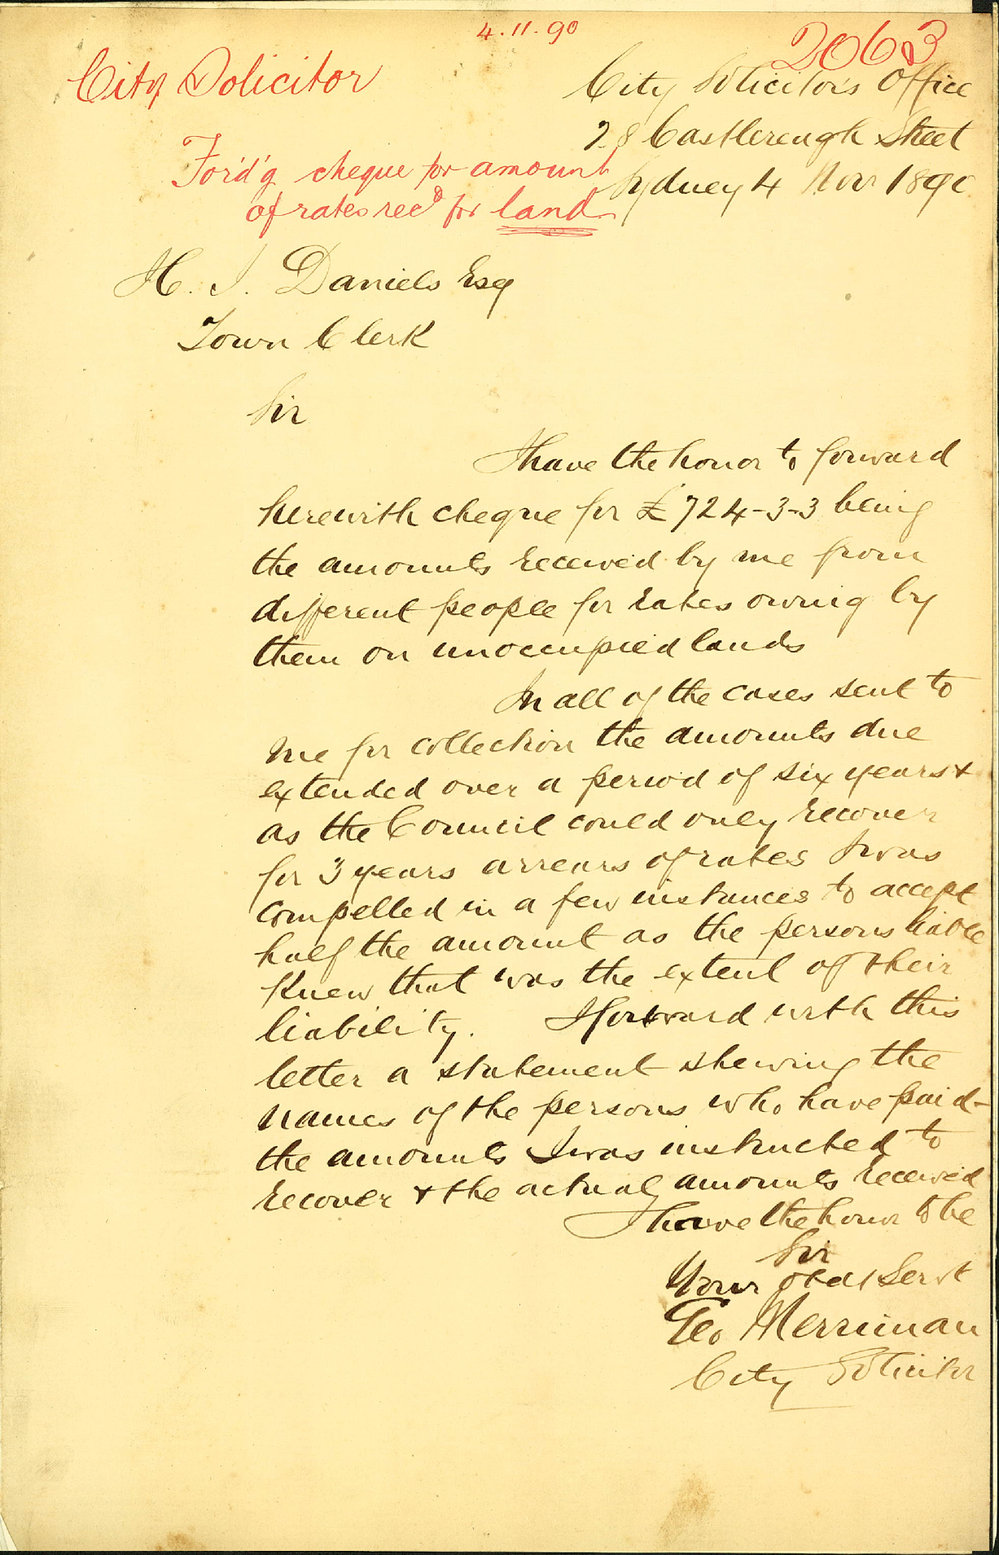 4.11.90
2063
City Solicitor
City Solicitor's Office
28 Castlereagh Street
Sydney 4 Novr 1890
For'd'g cheque for amount
of rates recd for land
H. J. Daniels Esq
Town Clerk
Sir
I have the honor to forward
herewith cheque for £724-3-3 being
the amounts received by me from
different people for rates owing by
them on unoccupied lands
In all of the cases sent to
me for collection the amounts due
extended over a period of six years &
as the Council could only recover
for 3 years arrears of rates I was
compelled in a few instances to accept
half the amount as the persons liable
knew that was the extent of their
liability. I forward with this
letter a statement shewing the
names of the persons who have paid -
the amounts I was instructed to
recover & the actual amounts received
I have the honor to be
Sir
Your obedt Servt
Geo Merriman
City Solicitor